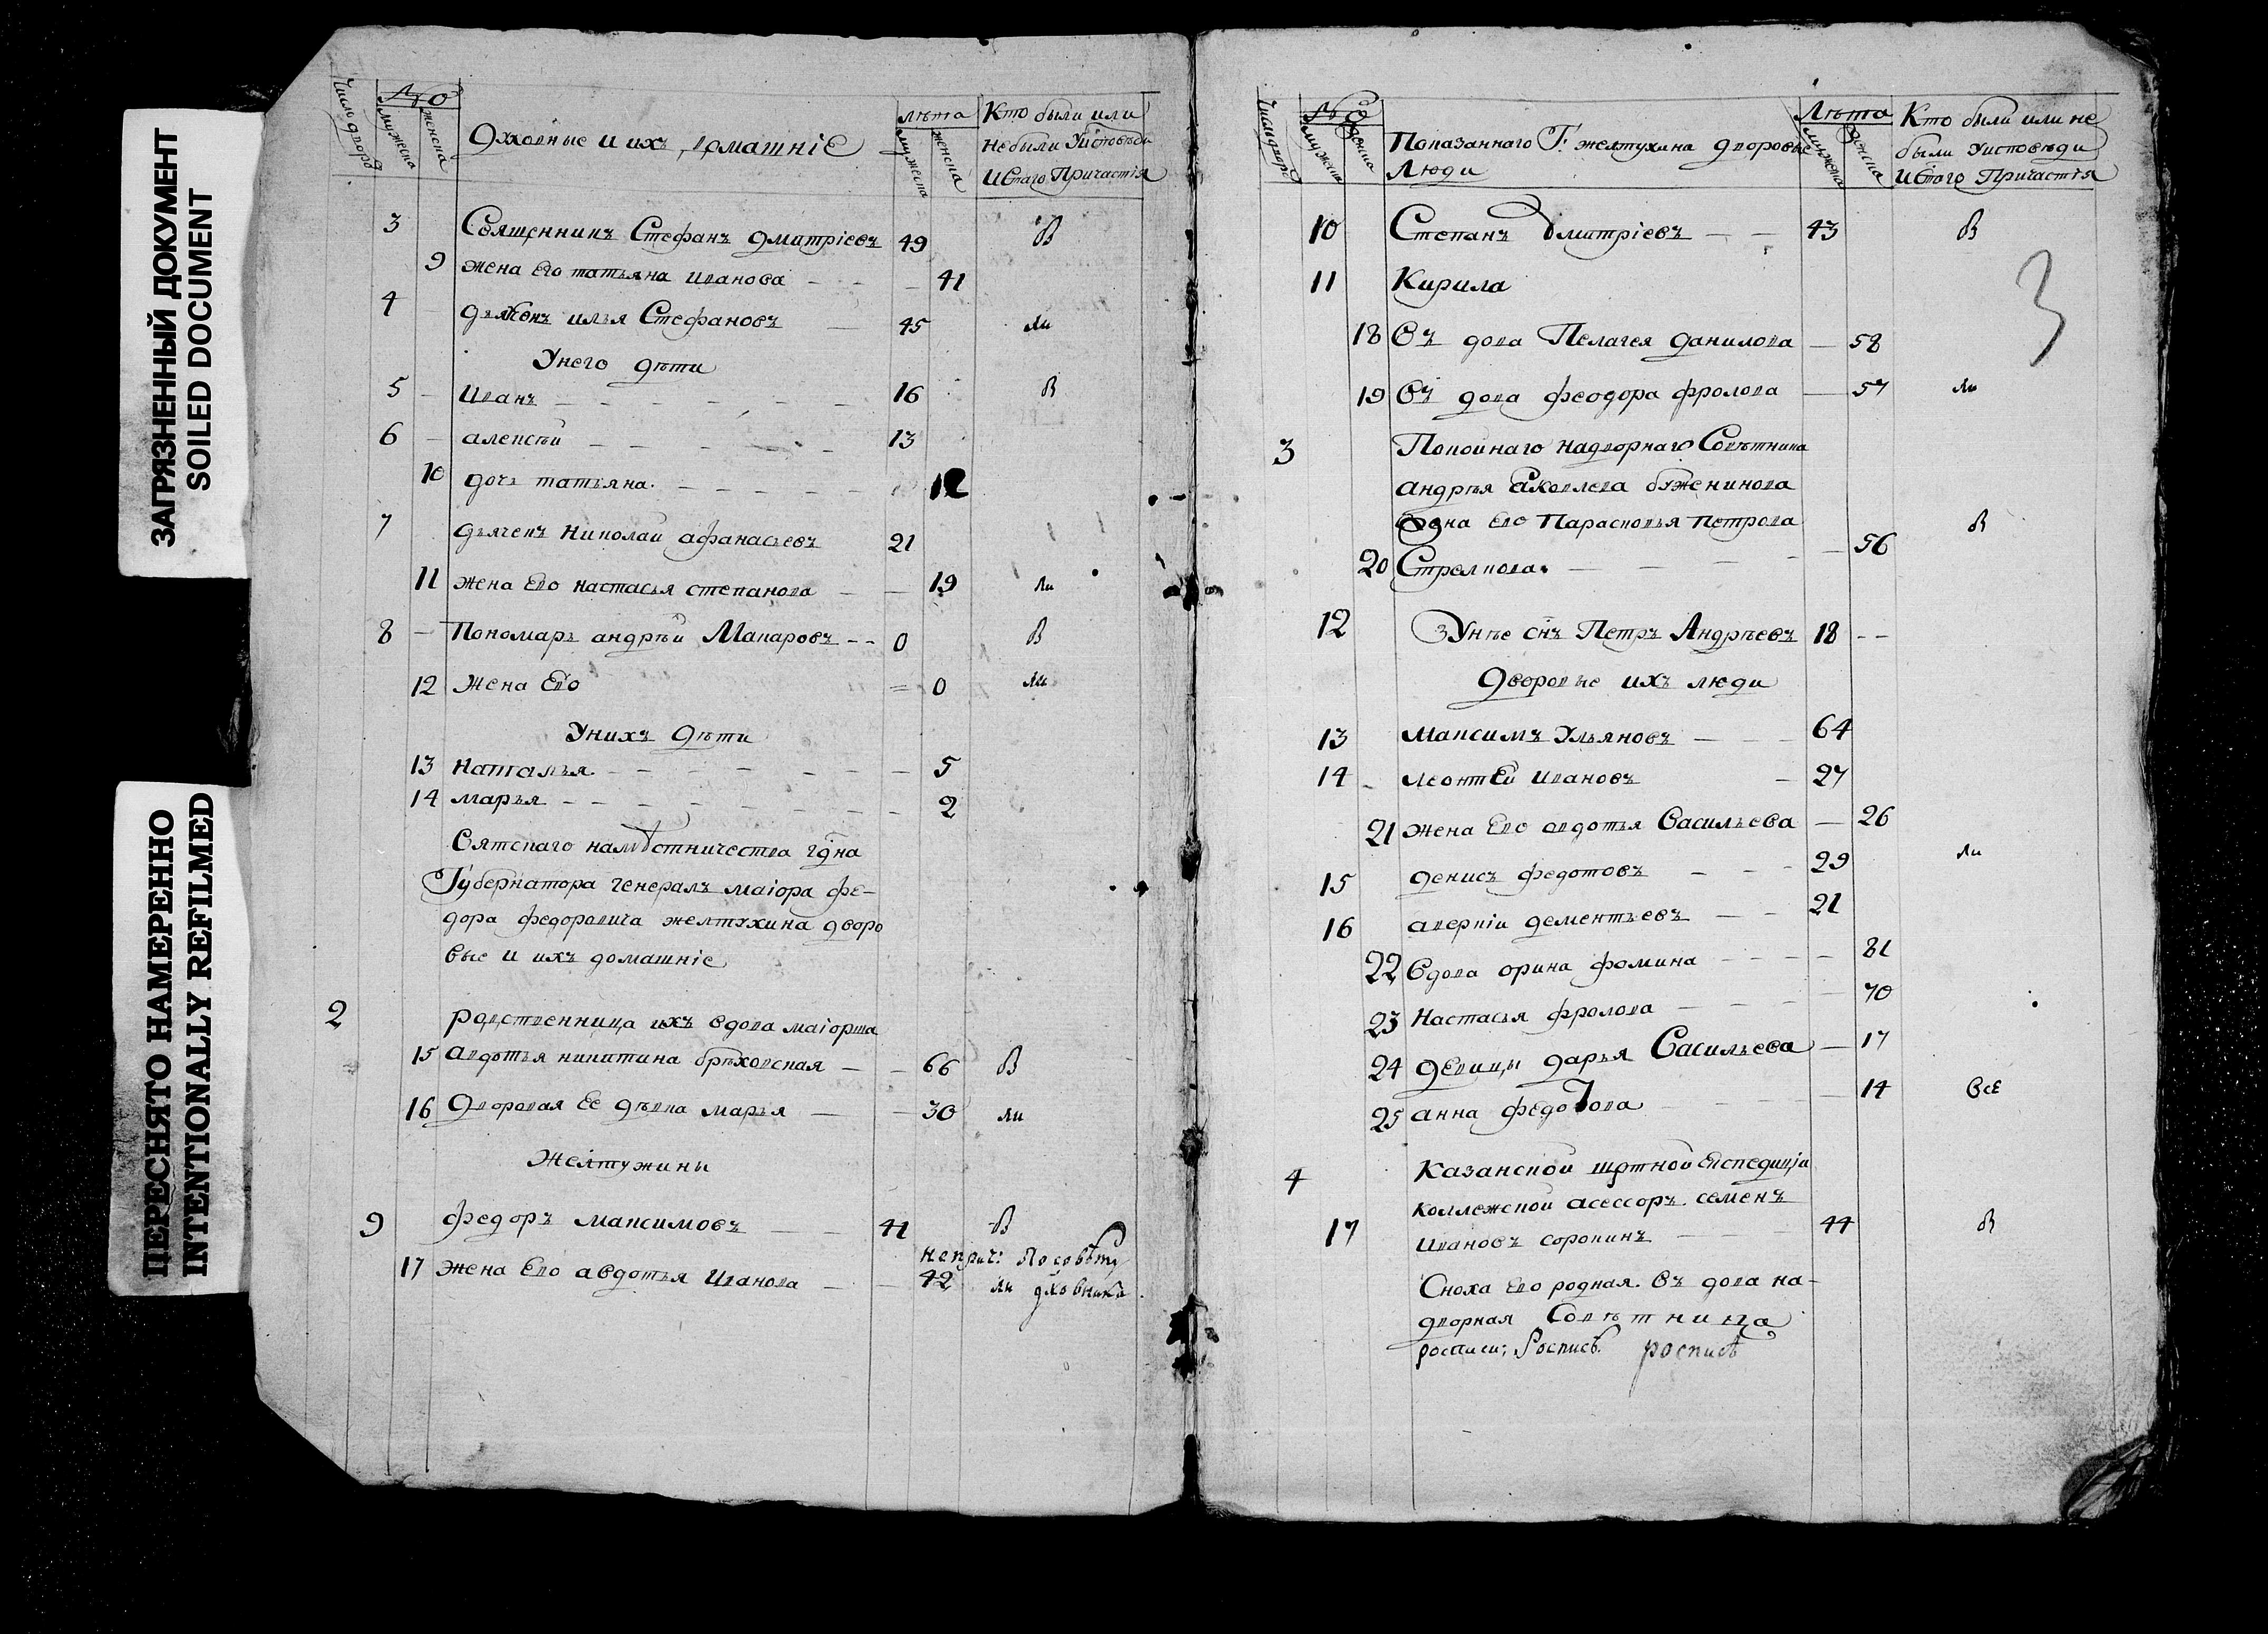 ЗАГРЯЗНЕННЫЙ ДОКУМЕНТ
SOILED DOCUMENT
ПЕРЕСНЯТО НАМЕРЕННО
INTENTIONALLY REFILMED
Число дворо
№
мужеска
женска
Духовные и ихъ домашніе
лѣта
мужеска
женска
Кто были или
не были У исповѣди
и Стаго Причастія
3 Священникъ Стефанъ Дмитріевъ 49 В
9 жена Его татьяна иванова 41
4 дьяконъ илья Стефановъ 45 ли
У него дѣти
5 иванъ 16 В
6 алексѣй 13
10 дочь татьяна 12
7 дьячекъ николай афанасьевъ 21
11 жена Его настасья степанова 19 ли
8 Пономарь андрѣй Макаровъ 0 В
12 жена Его 0 ли
У нихъ дѣти
13 наталья 5
14 марья 2
Вятскаго намѣстничества гдна
Губернатора генералъ маіора фе-
дора федоровича желтухина дворо
вые и ихъ домашніе
2 родственница ихъ вдова маіорша
15 авдотья никитина бряховская 66 В
16 Дворовая Ее дѣвка марья 30 ли
Желтухины
9 федоръ максимовъ 41 В
неприч: По совѣту
17 жена Его авдотья иванова 42 ли духовника
Число дворо
№
мужеска
женска
Показаннаго Г. желтухина дворовые
Люди
Лѣта
мужеска
женска
Кто были или не
были У исповѣди
и Стаго Причастія
3
10 Степанъ Дмитріевъ 43 В
11 Кирила
18 Въ дова Пелагея данилова 58
19 Въ дова феодора фролова 57 ли
3 Покойнаго надворнаго Совѣтника
андрѣя Яковлева бѫженинова
вдона Его Парасковья Петрова В
20 Стрелкова 56
12 У нѣе снъ Петръ Андрѣевъ 18
Дворовые ихъ люди
13 Максимъ Ульяновъ 64
14 леонтЕй ивановъ 27
21 жена Его авдотья Васильева 26
15 денисъ федотовъ 29 ли
16 аверкій дементьевъ 21
22 Вдова орина фомина 81
23 Настасья фролова 70
24 дЕвицы дарья Васильева 17
25 анна федотова 14 всЕ
4 Казанской щетной Експедиціи
коллежской асессоръ семенъ
17 ивановъ сорокинъ 44 В
Сноха Его родная. въ дова на-
дворная Совѣтница
росписи: Роспись. роспись